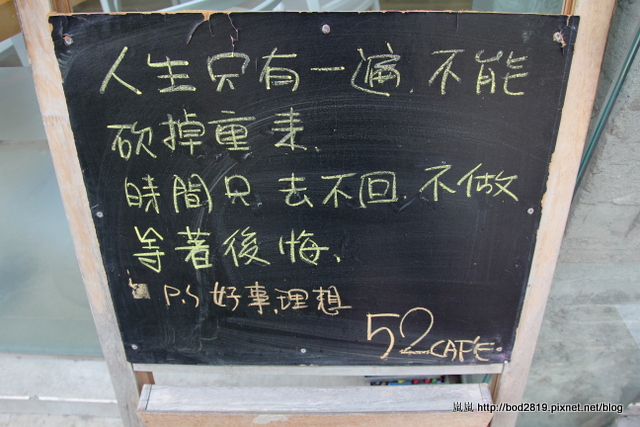 人生只有一遍.不能
砍掉重来.
時間只去不回.不做
等著後悔、
P.S 好事.理想
52 CAFE
嵐嵐 http://bod2819.pixnet.net/blog